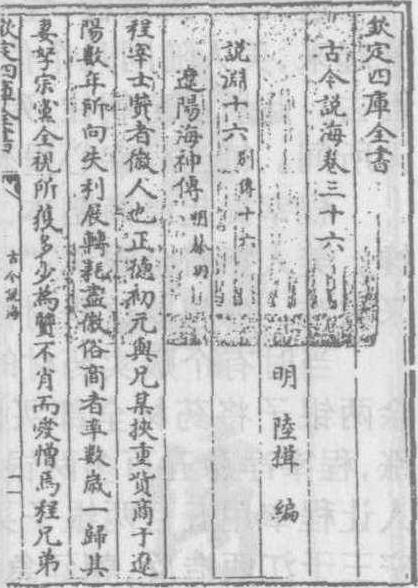 欽定四庫全書
古今說海卷三十六
明 陸楫 編
說淵十六 別傳十六
遼陽海神傳 明蔡羽
程宰士賢者徽人也正德初元與兄某挾重貲商于遼
陽數年所向失利展轉耗盡徽俗商者率數歲一歸其
妻孥宗黨全視所獲多少為賢不肖而愛憎焉程兄弟
欽定四庫全書
古今說海